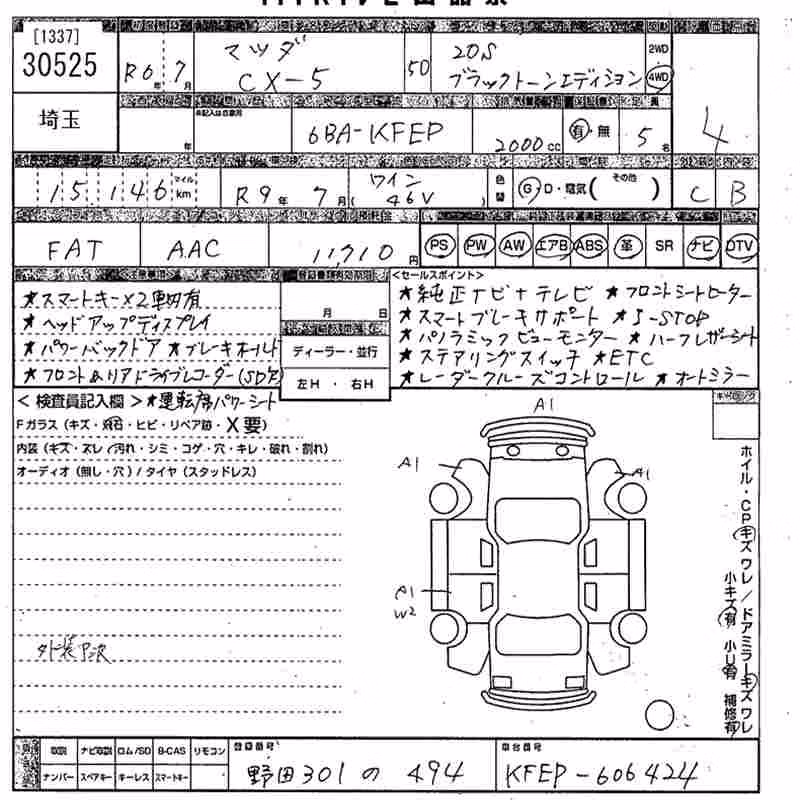 [1337]
30525
R6年 7月
マツダ
CX-5
50
20S
ブラックトーンエディション
2WD
4WD
4
埼玉
年
6BA-KFEP
2000 cc
有・無
5名
15,146
マイル
km
R9年 7月
ワイン
(46V)
色替
G・D・電気( その他 )
C
B
FAT
AAC
11,710円
PS PW AW エアB ABS 革 SR ナビ DTV
★スマートキー×2車内有
★ヘッドアップディスプレイ
★パワーバックドア ★ブレーキホールド
★フロント&リアドライブレコーダー(SD欠)
月 日
ディーラー・並行
左H ・ 右H
<セールスポイント>
★純正ナビ+テレビ ★フロントシートヒーター
★スマートブレーキサポート ★i-STOP
★パノラミックビューモニター ★ハーフレザーシート
★ステアリングスイッチ ★ETC
★レーダークルーズコントロール ★オートミラー
<検査員記入欄> ★運転席パワーシート
Fガラス(キズ・飛石・ヒビ・リペア跡・X要)
内装(キズ・スレ・汚れ・シミ・コゲ・穴・キレ・破れ・割れ)
オーディオ(無し・穴)/タイヤ(スタッドレス)
A1
A1
A1
A1
W2
ホイル・CPキズワレ/ドアミラーキズワレ
小キズ有 小U有 補修有
外装下次
取説 ナビ取説 ロム/SD B-CAS リモコン
ナンバー スペアキー キーレス スマートキー
登録番号
野田301の494
車台番号
KFEP-606424